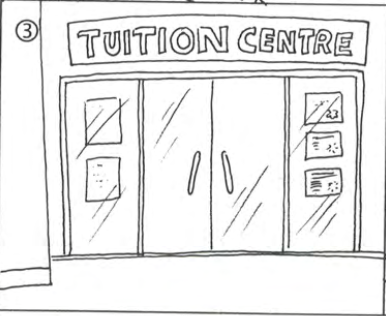 ③
TUITION CENTRE